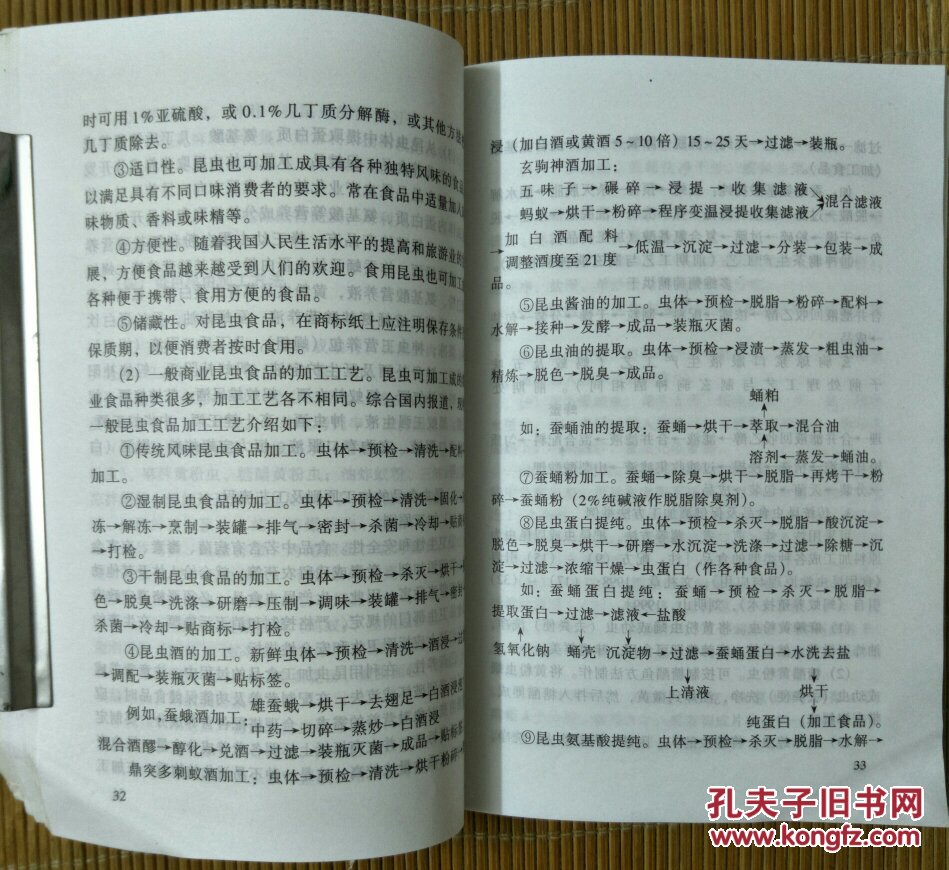 时可用1%亚硫酸，或0.1%几丁质分解酶，或其他方法
几丁质除去。
③适口性。昆虫也可加工成具有各种独特风味的食品
以满足具有不同口味消费者的要求。常在食品中适量加入
味物质、香料或味精等。
④方便性。随着我国人民生活水平的提高和旅游业的
展，方便食品越来越受到人们的欢迎。食用昆虫也可加工
各种便于携带、食用方便的食品。
⑤储藏性。对昆虫食品，在商标纸上应注明保存条件
保质期，以便消费者按时食用。
（2）一般商业昆虫食品的加工工艺。昆虫可加工成的
业食品种类很多，加工工艺各不相同。综合国内报道，现
一般昆虫食品加工工艺介绍如下：
①传统风味昆虫食品加工。虫体→预检→清洗→配料
加工。
②湿制昆虫食品的加工。虫体→预检→清洗→固化→
冻→解冻→烹制→装罐→排气→密封→杀菌→冷却→贴商
→打检。
③干制昆虫食品的加工。虫体→预检→杀灭→烘干→
色→脱臭→洗涤→研磨→压制→调味→装罐→排气→密封
杀菌→冷却→贴商标→打检。
④昆虫酒的加工。新鲜虫体→预检→清洗→酒浸→过
→调配→装瓶灭菌→贴标签。
雄蚕蛾→烘干→去翅足→白酒浸
例如，蚕蛾酒加工：中药→切碎→蒸炒→白酒浸
混合酒醪→醇化→兑酒→过滤→装瓶灭菌→成品→贴标签
鼎突多刺蚁酒加工：虫体→预检→清洗→烘干粉碎→
32
浸（加白酒或黄酒5~10倍）15~25天→过滤→装瓶。
玄驹神酒加工：
五味子→碾碎→浸提→收集滤液
混合滤液
蚂蚁→烘干→粉碎→程序变温浸提收集滤液
→加白酒配料
调整酒度至21度
→低温→沉淀→过滤→分装→包装→成
品。
⑤昆虫酱油的加工。虫体→预检→脱脂→粉碎→配料→
水解→接种→发酵→成品→装瓶灭菌。
⑥昆虫油的提取。虫体→预检→浸渍→蒸发→粗虫油→
精炼→脱色→脱臭→成品。
蛹粕
如：蚕蛹油的提取：蚕蛹→烘干→萃取→混合油
溶剂←蒸发→蛹油。
⑦蚕蛹粉加工。蚕蛹→除臭→烘干→脱脂→再烤干→粉
碎→蚕蛹粉（2%纯碱液作脱脂除臭剂）。
⑧昆虫蛋白提纯。虫体→预检→杀灭→脱脂→酸沉淀→
脱色→脱臭→烘干→研磨→水沉淀→洗涤→过滤→除糖→沉
淀→过滤→浓缩干燥→虫蛋白（作各种食品）。
如：蚕蛹蛋白提纯：蚕蛹→预检→杀灭→脱脂→
提取蛋白→过滤→滤液←盐酸
氢氧化钠 蛹壳 沉淀物→过滤→蚕蛹蛋白→水洗去盐
上清液 烘干
纯蛋白（加工食品）。
⑨昆虫氨基酸提纯。虫体→预检→杀灭→脱脂→水解→
33
孔夫子旧书网
www.kongfz.com